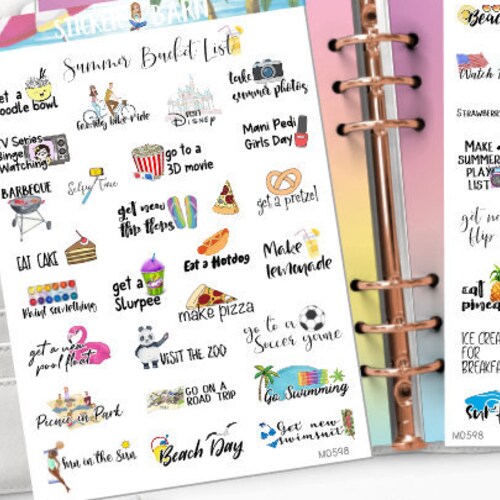 STICKER BARN
Summer Bucket List
get a
noodle bowl
family bike ride
VISIT
DISNEY
take
summer photos
TV Series
Binge
Watching
go to a
3D movie
Mani Pedi
Girls Day
BARBEQUE
Selfy Time
get new
flip flops
get a pretzel
EAT CAKE
get a
Slurpee
Eat a Hotdog
Make
lemonade
Paint something
make pizza
get a new
pool float
VISIT THE ZOO
go to a
Soccer game
Picnic in Park
GO ON A
ROAD TRIP
Go Swimming
Sun in the Sun
Beach Day
Get new
swimsuit
M0598
Beac
Watch
STRAWBERRI
MAKE
SUMMER
PLAY
LIST
get ne
flip
eat
pinea
ICE CREA
FOR
BREAKFA
M0598